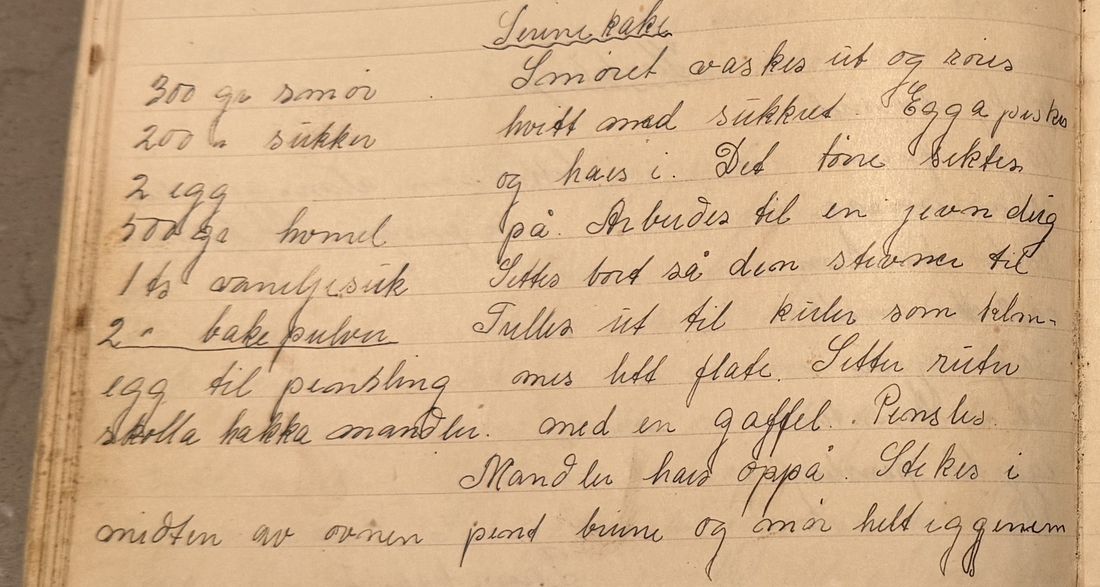 Serinekake
300 gr smør
200 " sukker
2 egg
500 gr hvmel
1 ts vaniljesuk
2 " bakepulver
egg til pensling
skolla hakka mandler.
Smøret vaskes ut og røres
hvitt med sukkret. Egga piskes
og haes i. Det tørre siktes
på. Arbeides til en jevn deig
Settes bort så den stivner til
Trilles ut til kuler som klem-
mes litt flate. Setter ruter
med en gaffel. Pensles.
Mandler haes oppå. Stekes i
midten av ovnen pent brune og mør helt iggenem